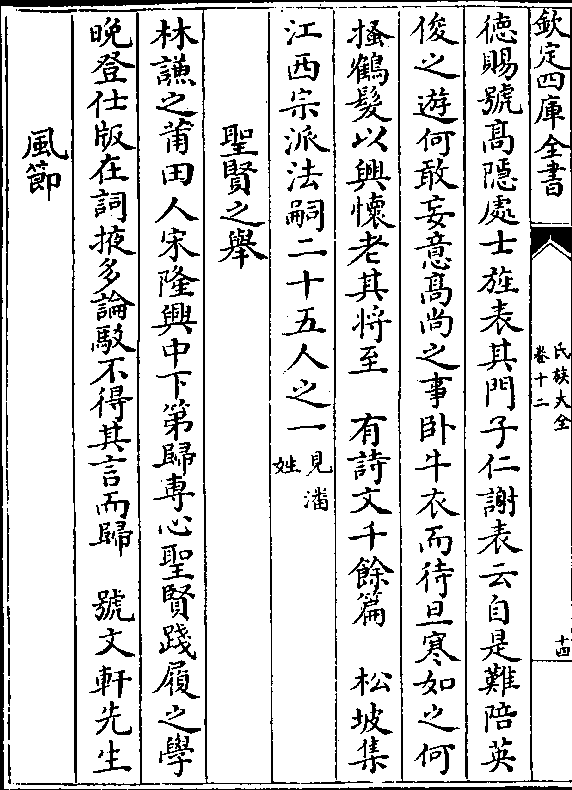 欽定四庫全書
氏族大全
卷十二
十四
德賜號高隱處士旌表其門子仁謝表云自是難陪英
俊之遊何敢妄意高尚之事臥牛衣而待旦寒如之何
搔鶴髮以興懷老其将至　有詩文千餘篇　松坡集
江西宗派法嗣二十五人之一見潘姓
聖賢之舉
林謙之莆田人宋隆興中下第歸専心聖賢踐履之學
晚登仕版在詞掖多論駁不得其言而歸　號文軒先生
風節